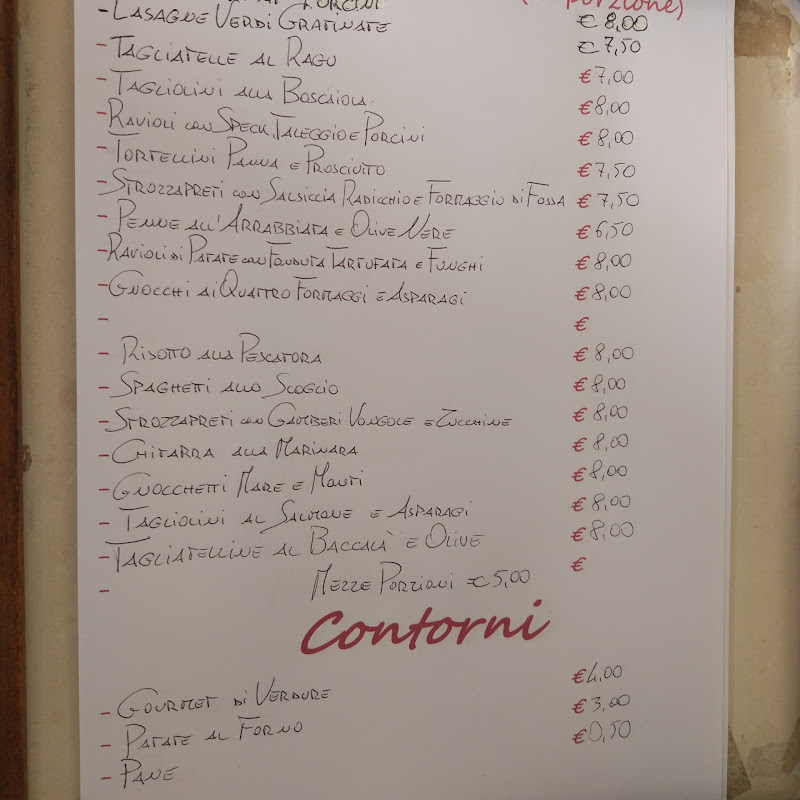 PORCINI € 8,00
porzione)
- LASAGNE VERDI GRATINATE € 7,50
- TAGLIATELLE AL RAGU € 7,00
- TAGLIOLINI ALLA BOSCAIOLA. € 8,00
- RAVIOLI CON SPECK, TALEGGIO E PORCINI € 8,00
- TORTELLINI PANNA E PROSCIUTTO € 7,50
- STROZZAPRETI CON SALSICCIA RADICCHIO E FORMAGGIO DI FOSSA € 7,50
- PENNE ALL'ARRABBIATA E OLIVE NERE € 6,50
- RAVIOLI DI PATATE CON FONDUTA TARTUFATA E FUNGHI € 8,00
- GNOCCHI AI QUATTRO FORMAGGI E ASPARAGI € 8,00
- €
- RISOTTO ALLA PESCATORA € 8,00
- SPAGHETTI ALLO SCOGLIO € 8,00
- STROZZAPRETI CON GAMBERI VONGOLE E ZUCCHINE € 8,00
- CHITARRA ALLA MARINARA € 8,00
- GNOCCHETTI MARE E MONTI € 8,00
- TAGLIOLINI AL SALMONE E ASPARAGI € 8,00
- TAGLIATELLINE AL BACCALÀ E OLIVE € 8,00
- €
MEZZE PORZIONI € 5,00
Contorni
- GOURMET DI VERDURE € 4,00
- PATATE AL FORNO € 3,00
- PANE € 0,50